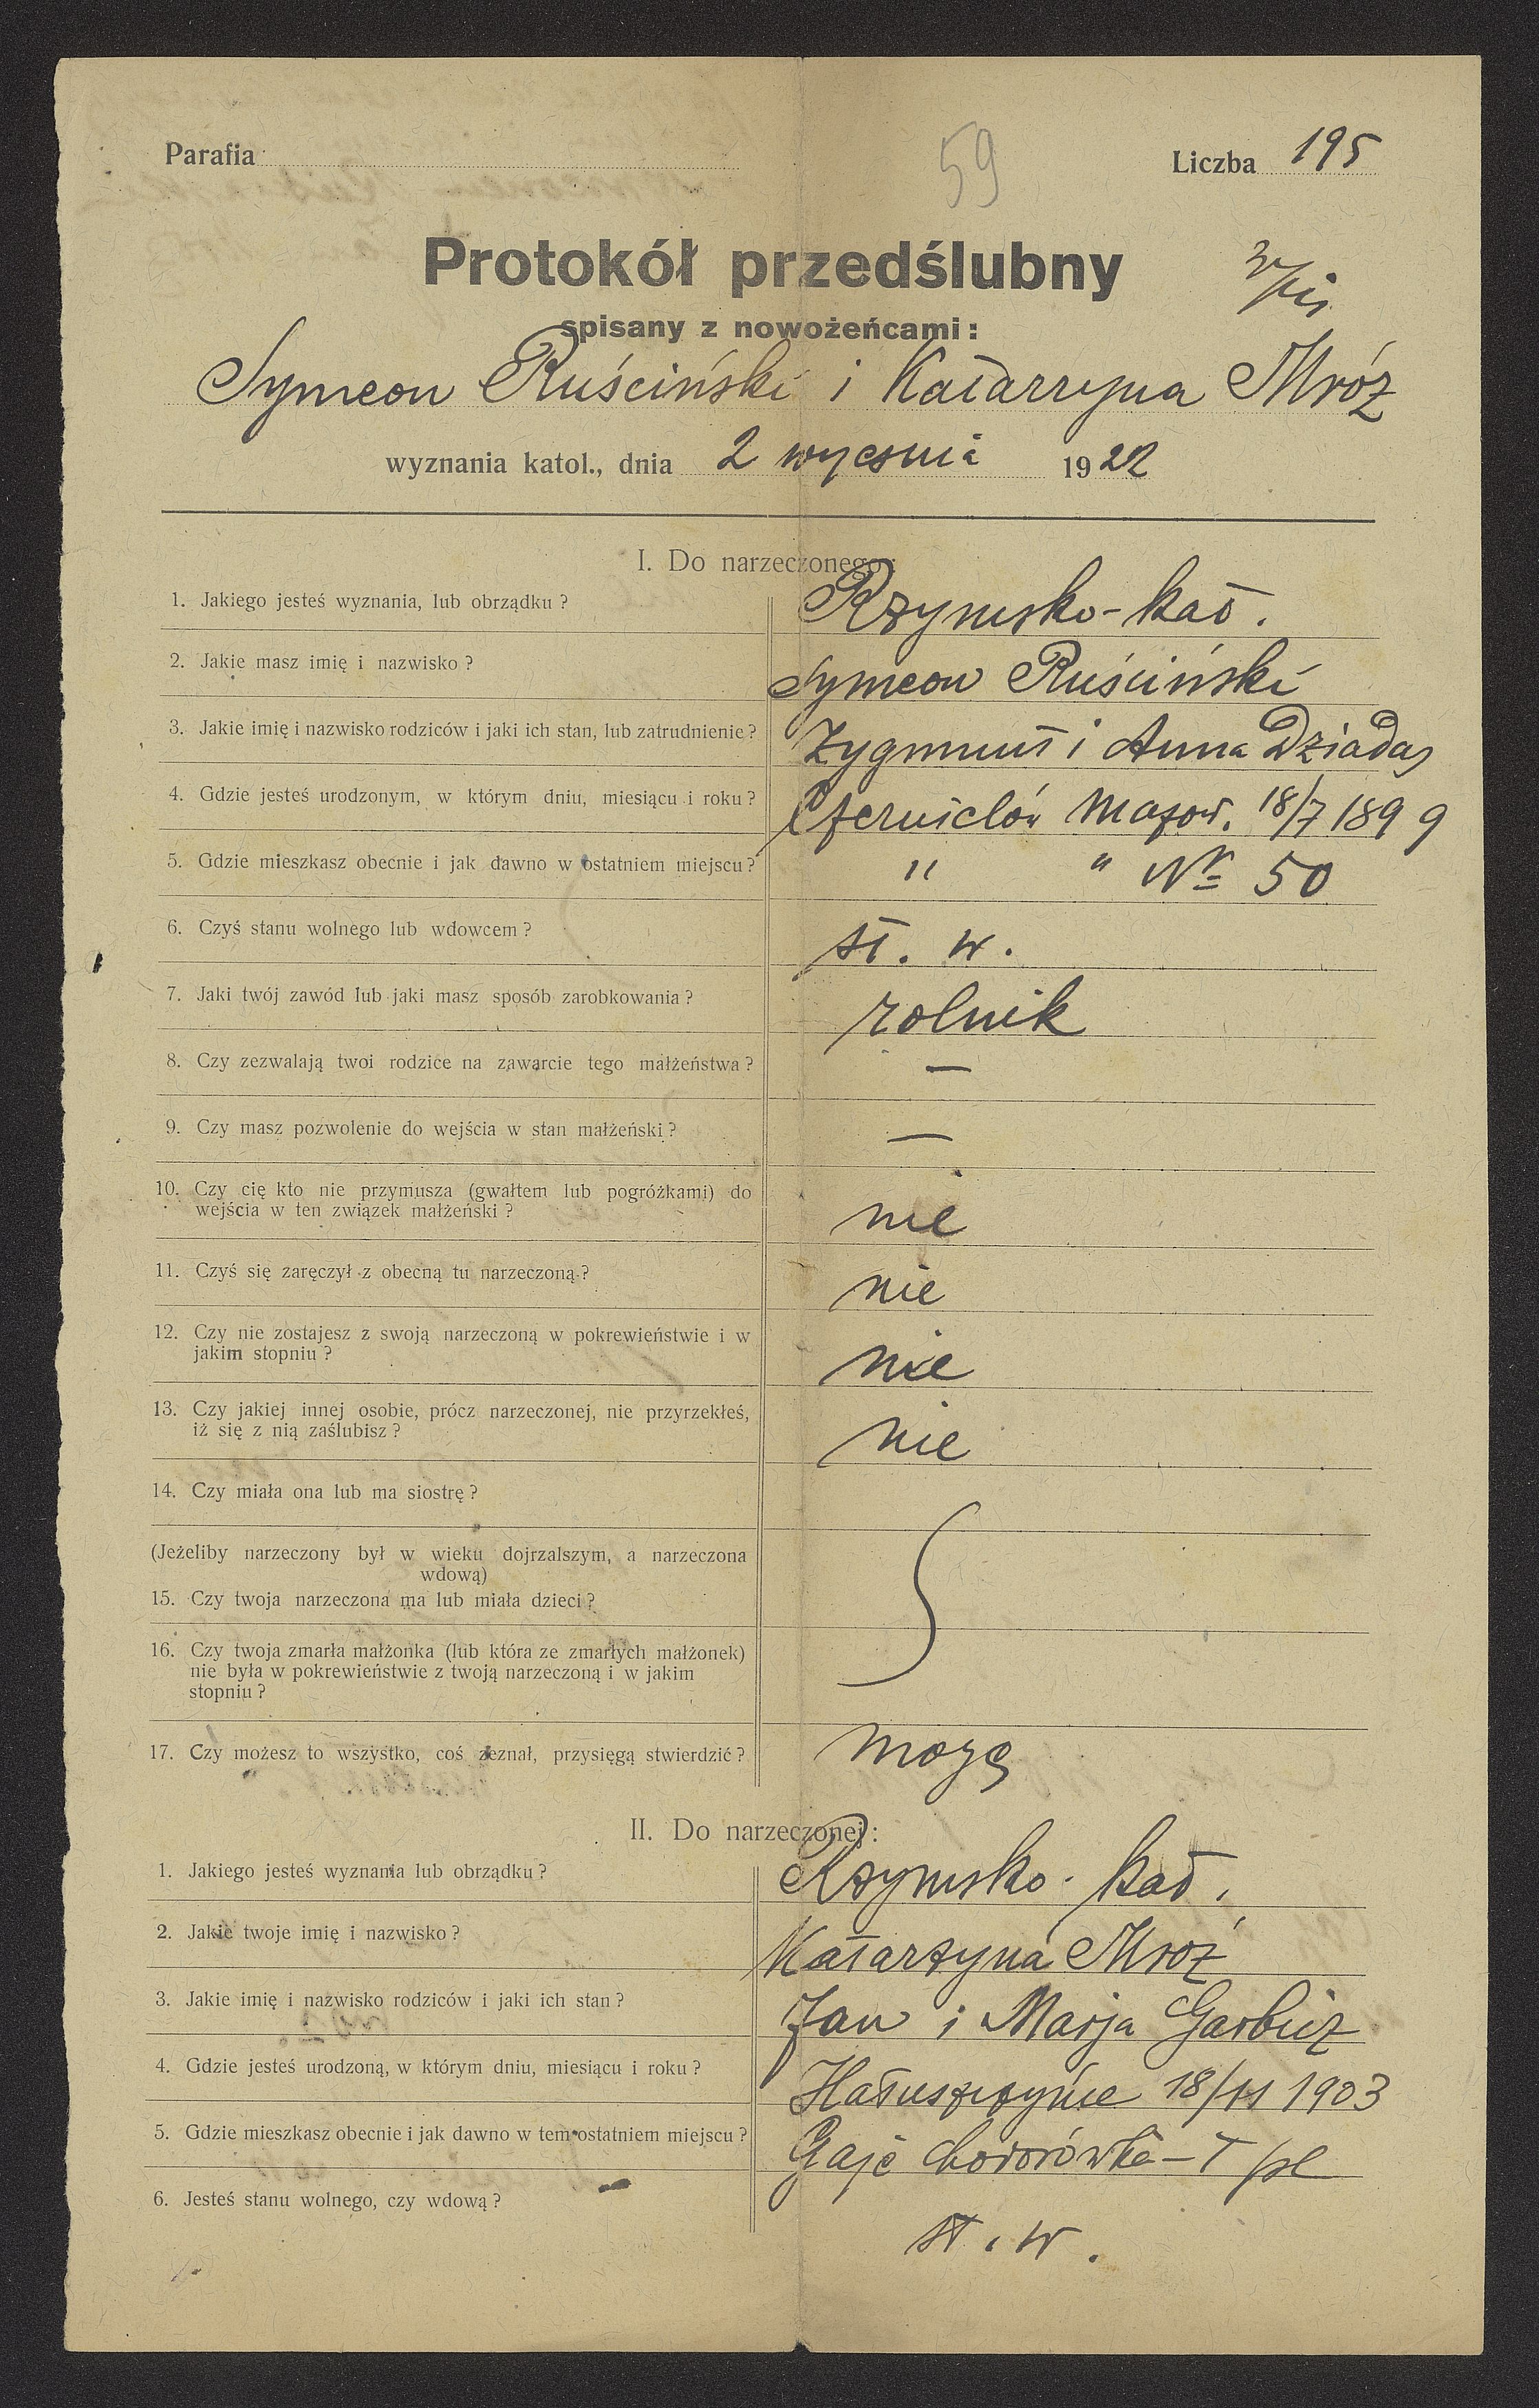 Parafia
59
Liczba 195
Protokół przedślubny
spisany z nowożeńcami:
Symeon Ruściński i Katarzyna Mróz
wyznania katol., dnia 2 wrześnią 1922
I. Do narzeczonego:
1. Jakiego jesteś wyznania, lub obrządku? Rzymsko-kat.
2. Jakie masz imię i nazwisko? Symeon Ruściński
3. Jakie imię i nazwisko rodziców i jaki ich stan, lub zatrudnienie? Zygmunt i Anna Dziadas
4. Gdzie jesteś urodzonym, w którym dniu, miesiącu i roku? Czernielów Mazow. 18/7 1899
5. Gdzie mieszkasz obecnie i jak dawno w ostatniem miejscu? " " Nr 50
6. Czyś stanu wolnego lub wdowcem? st. w.
7. Jaki twój zawód lub jaki masz sposób zarobkowania? rolnik
8. Czy zezwalają twoi rodzice na zawarcie tego małżeństwa? —
9. Czy masz pozwolenie do wejścia w stan małżeński? —
10. Czy cię kto nie przymusza (gwałtem lub pogróżkami) do
wejścia w ten związek małżeński? nie
11. Czyś się zaręczył z obecną tu narzeczoną? nie
12. Czy nie zostajesz z swoją narzeczoną w pokrewieństwie i w
jakim stopniu? nie
13. Czy jakiej innej osobie, prócz narzeczonej, nie przyrzekłeś,
iż się z nią zaślubisz? nie
14. Czy miała ona lub ma siostrę?
(Jeżeliby narzeczony był w wieku dojrzalszym, a narzeczona
wdową)
15. Czy twoja narzeczona ma lub miała dzieci?
16. Czy twoja zmarła małżonka (lub która ze zmarłych małżonek)
nie była w pokrewieństwie z twoją narzeczoną i w jakim
stopniu?
17. Czy możesz to wszystko, coś zeznał, przysięgą stwierdzić? mogę
II. Do narzeczonej:
1. Jakiego jesteś wyznania lub obrządku? Rzymsko-kat.
2. Jakie twoje imię i nazwisko? Katarzyna Mróz
3. Jakie imię i nazwisko rodziców i jaki ich stan? Jan i Marja Garbicz
4. Gdzie jesteś urodzoną, w którym dniu, miesiącu i roku? Hałuszczyńce 18/11 1903
5. Gdzie mieszkasz obecnie i jak dawno w tem ostatniem miejscu? Gaje chodorówka –
6. Jesteś stanu wolnego, czy wdową? st. w.